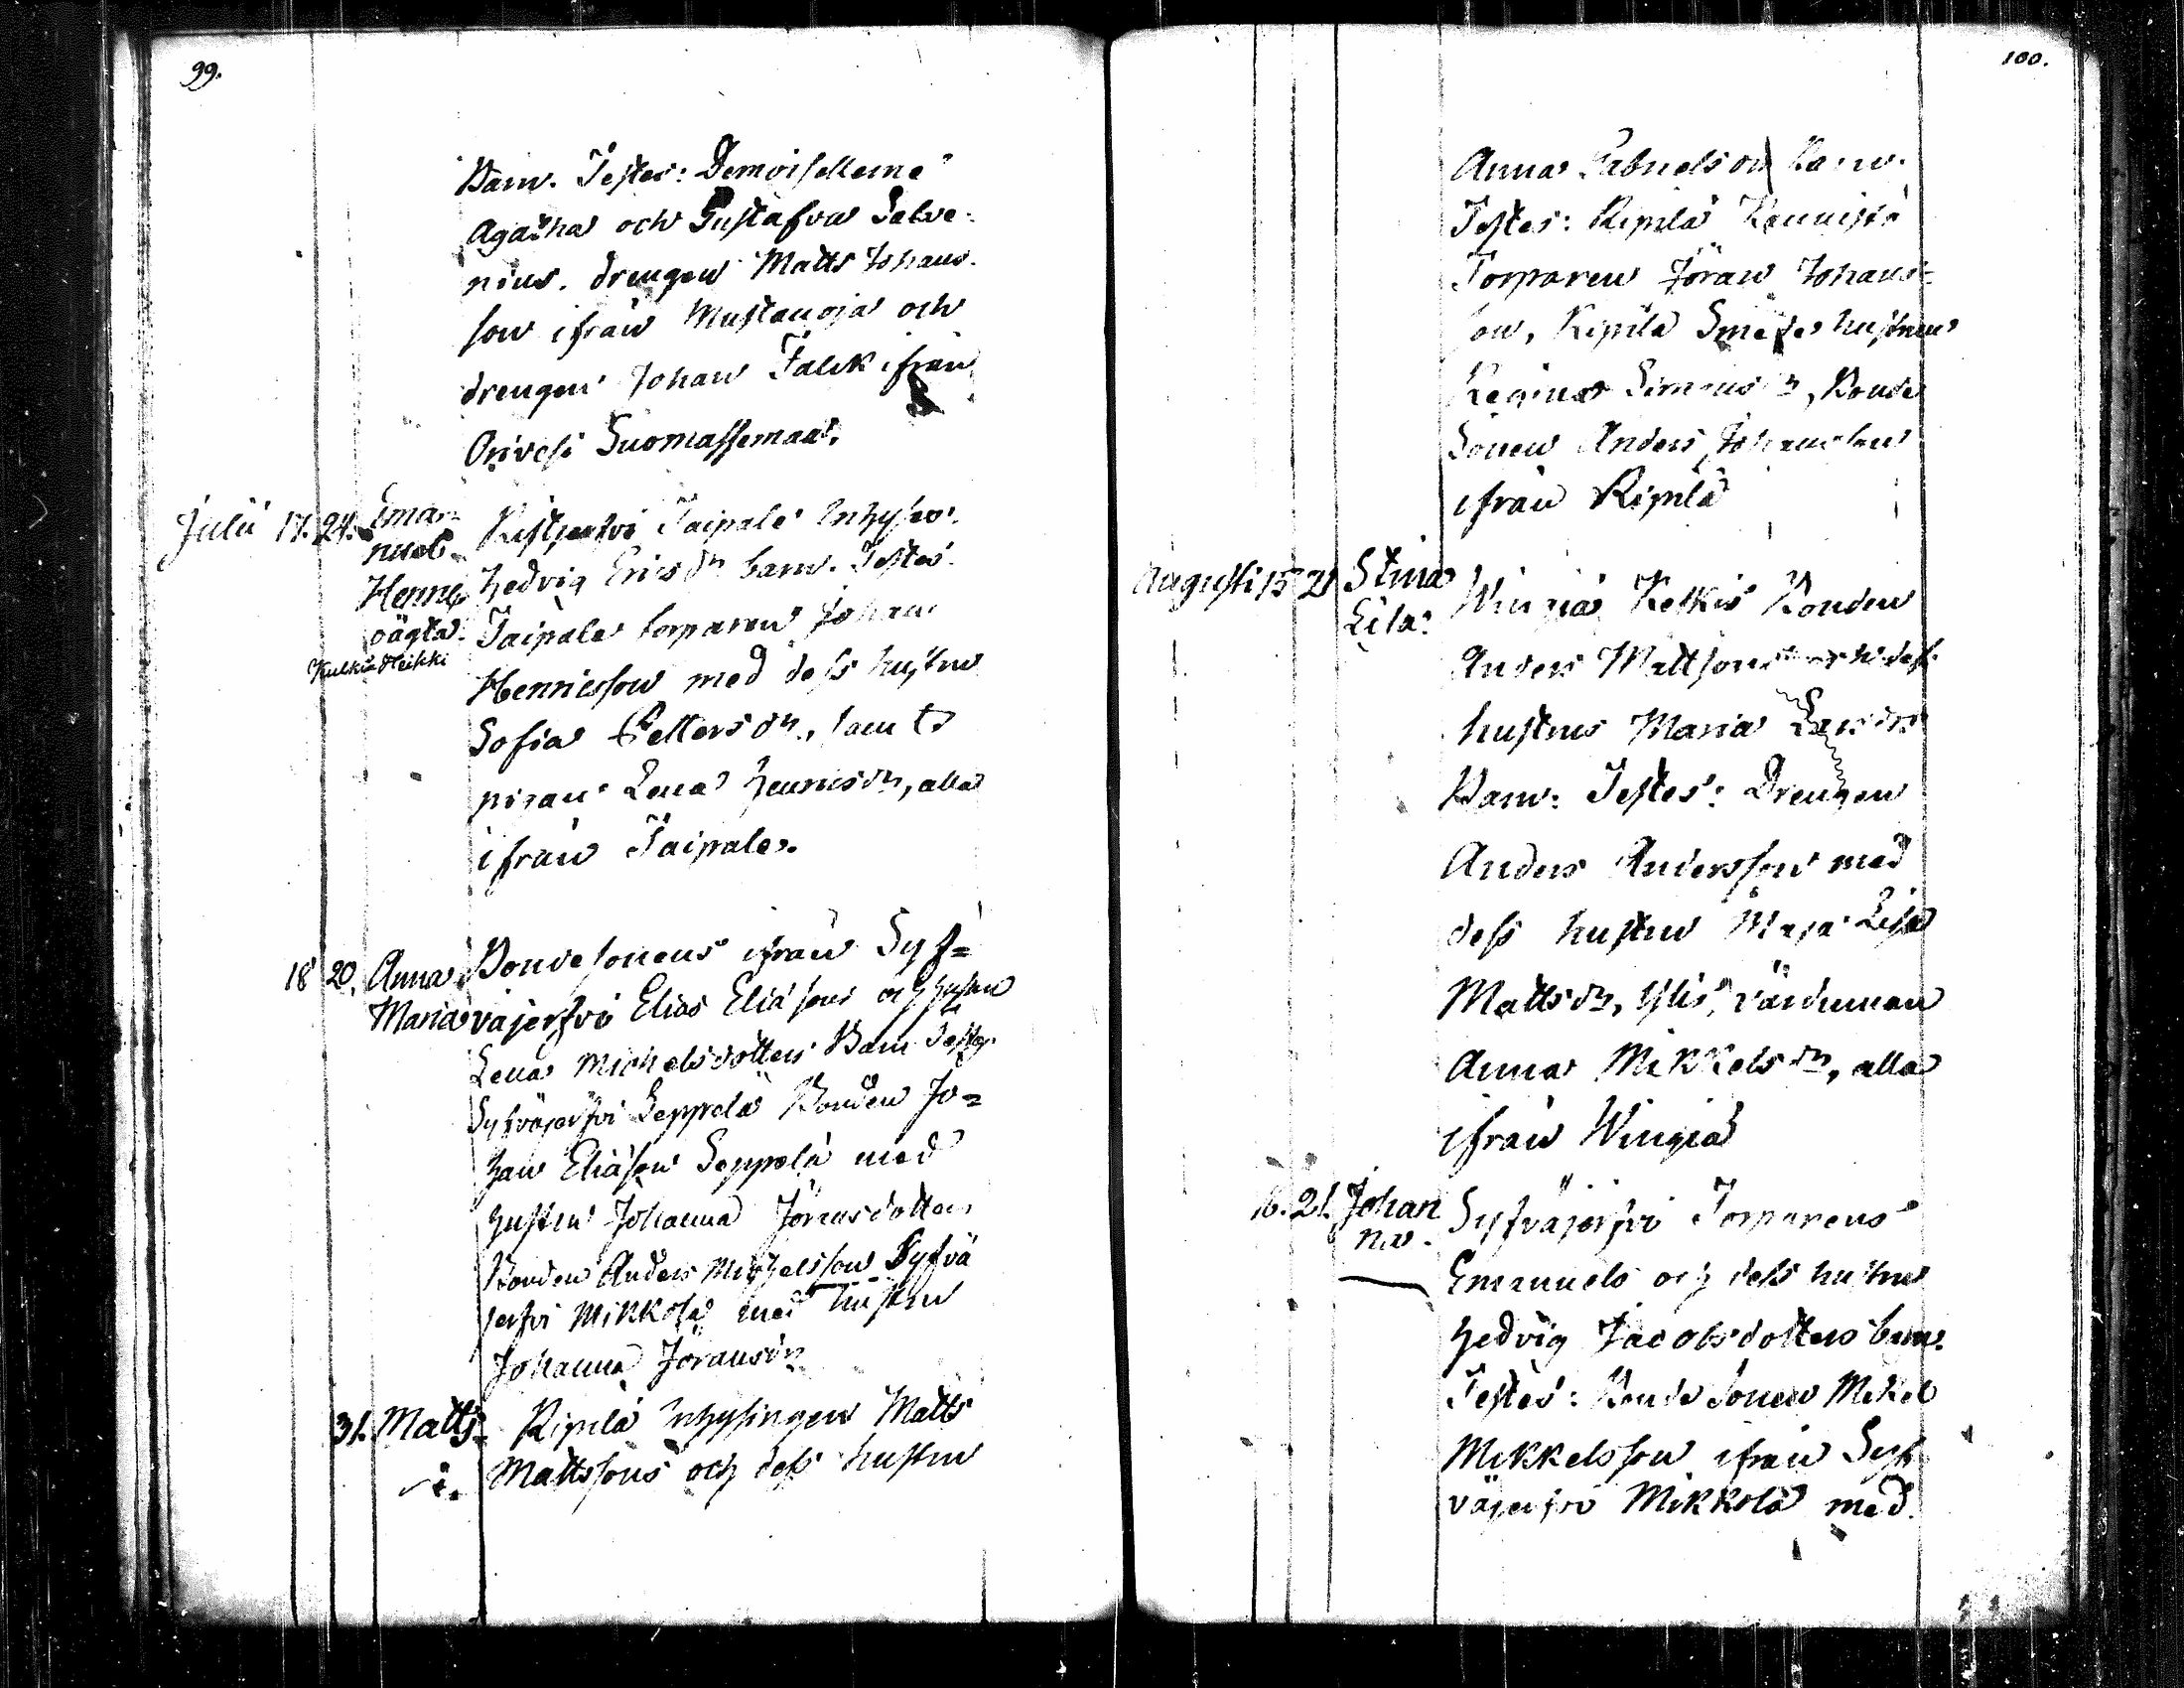 99.
Barn. Testes: Demoisellerne
Agatha och Gustafva Salve-
nius. drengen Matts Johans-
son ifrån Mustanoja och
drengen Johan Falck ifrån
Orivesi Suomassemaa.
Julii 17. 24. Ema-
nuel. Ristjerfvi Taipale Inhyses
Henric Hedvig Ericsdr barn. Testes:
oägta. Taipale torparen Johan
Kulkia Heikki
Henricsson med dess hustru
Sofia Pettersdr, samt
pigan Lena Henricsdr, alla
ifrån Taipale.
18 20. Anna Bondesonens ifrån Syf=
Maria väjerfvi Elias Eliasons och hustru
Lena Michelsdotters Barn Testes
Syfväjerfvi Seppelä Bonden Jo=
han Eliasson Seppelä med
hustru Johanna Jöransdotter,
Bonden Anders Michelsson Syfvä
jerfvi Mikkola med hustru
Johanna Jöransdr
31. Matts Ripilä Inhysingen Matts
Mattssons och dess hustru
100.
Anna Gabrielsdr Barn.
Testes: Ripilä
Torparen Jöran Johans=
son, Ripilä Smeds hustrun
Regina Simonsdr, Bonde
Sonen Anders Johansson
ifrån Ripilä
Augusti 15 21 Stina
Lisa. Wingiä Kelkis Bonden
Anders Mattsons och dess
hustrus Maria
Barn: Testes: Drengen
Anders Andersson med
dess hustru Maja Lisa
Mattsdr, värdinnan
Anna Mikkelsdr, alla
ifrån Wingiä
16. 21. Johan
na. Syfväjerfvi Torparens
Emanuels och dess hustru
Hedvig Jacobsdotters barn.
Testes: Bonde Sonen Mikel
Mikkelsson ifrån Syf
väjerfvi Mikkola med